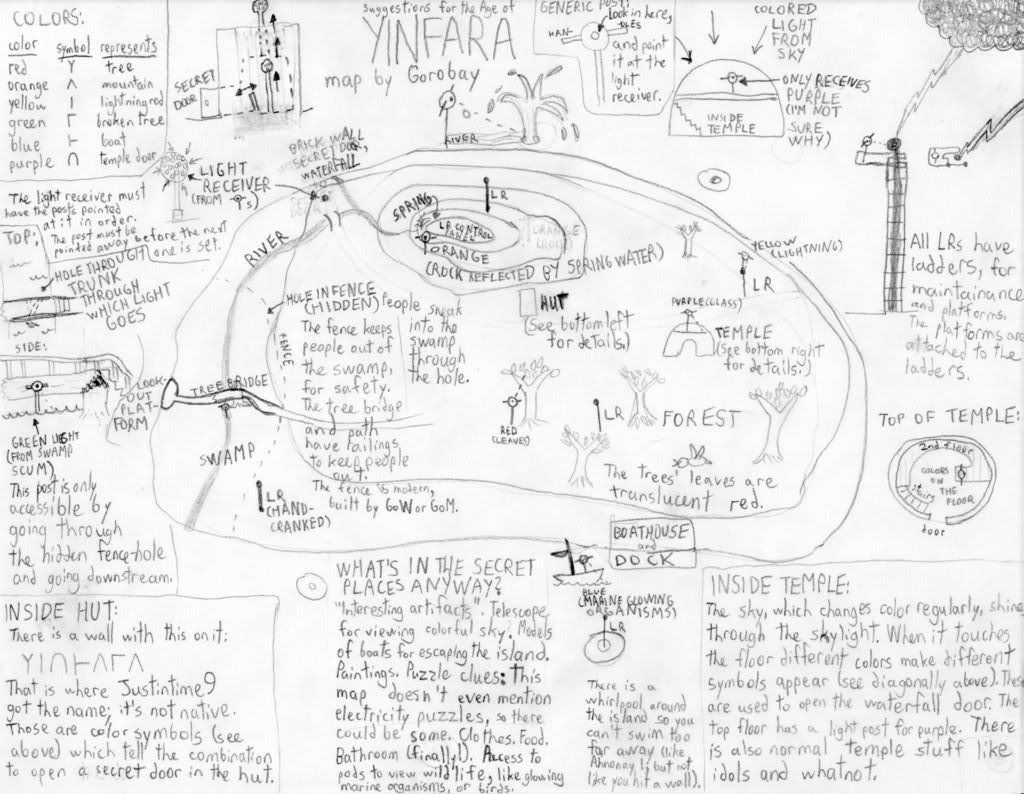 COLORS:
color symbol represents
red Y tree
orange ʌ mountain
yellow ı lightning rod
green Γ broken tree
blue ⊢ boat
purple ∩ temple door
SECRET
DOOR
suggestions for the Age of
YINFARA
map by Gorobay
GENERIC POST:
Look in here,
HAN-
DLES
and point
it at the
light
receiver.
COLORED
LIGHT
FROM
SKY
ONLY RECEIVES
PURPLE
(I'M NOT
SURE
WHY)
INSIDE
TEMPLE
RIVER
BRICK WALL
SECRET DOOR,
WATERFALL
LIGHT
RECEIVER
(FROM s)
The light receiver must
have the posts pointed
at it in order.
The post must be
pointed away before the next
one is set.
TOP:
HOLE THROUGH
TRUNK
THROUGH
WHICH LIGHT
GOES
SIDE:
GREEN LIGHT
(FROM SWAMP
SCUM)
This post is only
accessible by
going through
the hidden fence-hole
and going downstream.
LOOK-
OUT
PLAT-
FORM
TREE BRIDGE
RIVER
SWAMP
LR
(HAND-
CRANKED)
HOLE IN FENCE
(HIDDEN)
People
sneak
into the
swamp
through
the hole.
FENCE
The fence keeps
people out of
the swamp,
for safety.
The tree bridge
and path
have railings
to keep people
out.
The fence is modern,
built by GoW or GoM.
SPRING
LR CONTROL
PANEL
LR
ORANGE
(ROCK REFLECTED BY SPRING WATER)
ORANGE
(ROCK)
HUT
(See bottom left
for details.)
YELLOW
(LIGHTNING)
LR
PURPLE (GLASS)
TEMPLE
(See bottom right
for details.)
RED
(LEAVES)
LR
FOREST
The trees' leaves are
translucent red.
All LRs have
ladders, for
maintainance
and platforms.
The platforms are
attached to the
ladders.
TOP OF TEMPLE:
2nd floor
COLORS
ON
THE
FLOOR
stairs
door
BOATHOUSE
and
DOCK
BLUE
(MARINE GLOWING
ORGANISMS)
LR
There is a
whirlpool around
the island so you
can't swim too
far away (like
Ahnonay 1, but not
like you hit a wall).
INSIDE HUT:
There is a wall with this on it:
YINFARA
That is where Justintime9
got the name; it's not native.
Those are color symbols (see
above) which tell the combination
to open a secret door in the hut.
WHAT'S IN THE SECRET
PLACES ANYWAY?
"Interesting artifacts". Telescope
for viewing colorful sky. Models
of boats for escaping the island.
Paintings. Puzzle clues: This
map doesn't even mention
electricity puzzles, so there
could be some. Clothes. Food.
Bathroom (finally!). Access to
pods to view wildlife, like glowing
marine organisms, or birds.
INSIDE TEMPLE:
The sky, which changes color regularly, shines
through the skylight. When it touches
the floor different colors make different
symbols appear (see diagonally above). These
are used to open the waterfall door. The
top floor has a light post for purple. There
is also normal temple stuff like
idols and whatnot.